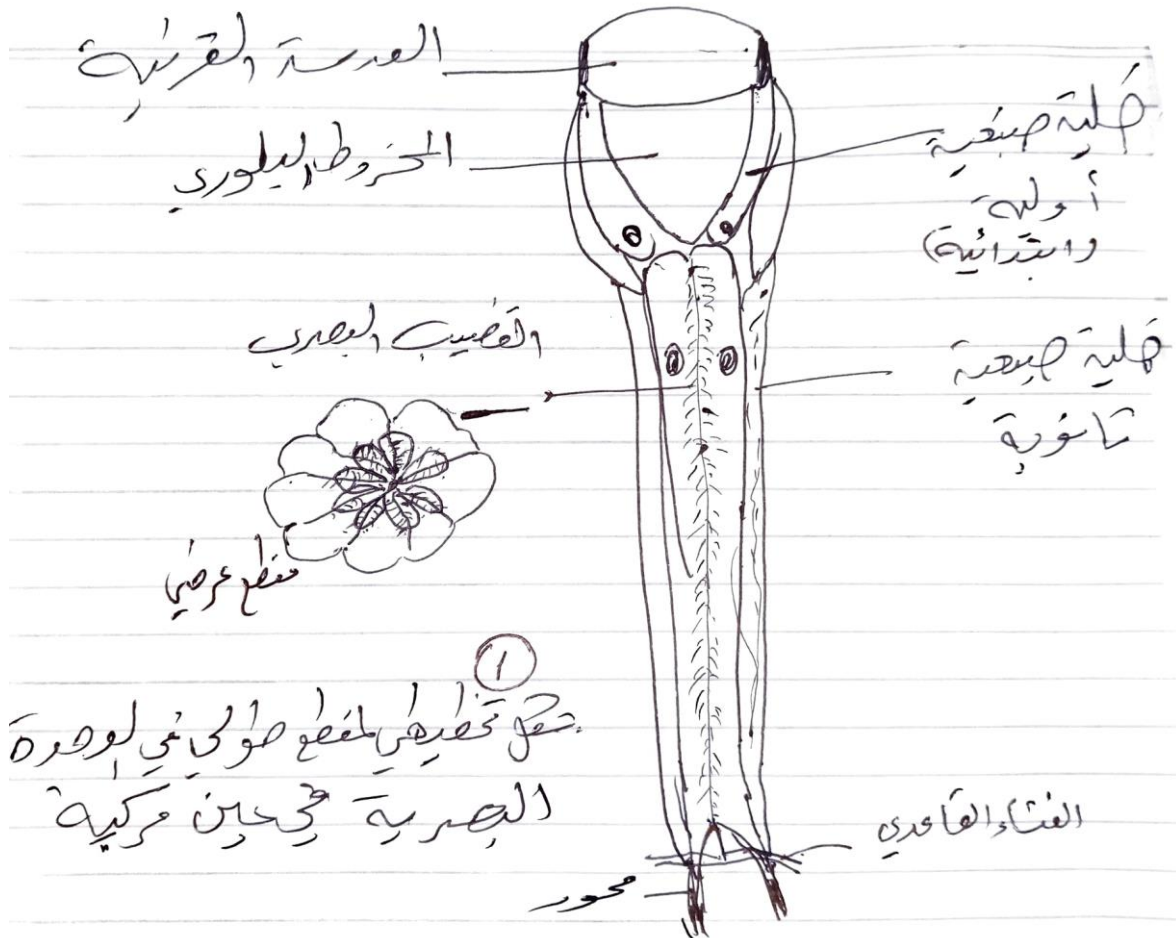 العدسة القرنية
المخروط البلوري
خلية صبغية
أولية
(ابتدائية)
القضيب البصري
خلية صبغية
ثانوية
مقطع عرضي
١
شكل تخطيطي لمقطع طولي في الوحدة
البصرية في عين مركبة
الغشاء القاعدي
محور